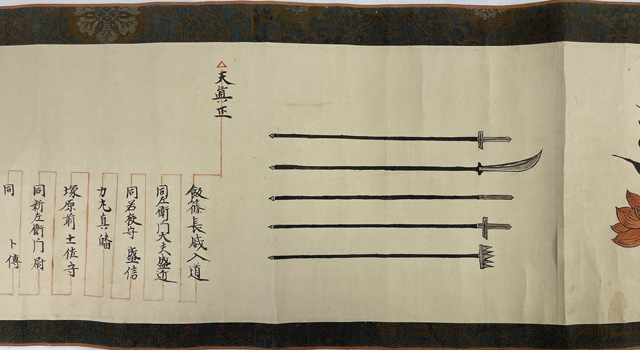 天眞正
飯篠長威入道
同左衛門大夫盛近
同若狭守盛信
塚原前土佐守
同新左衛門尉
同 卜傳